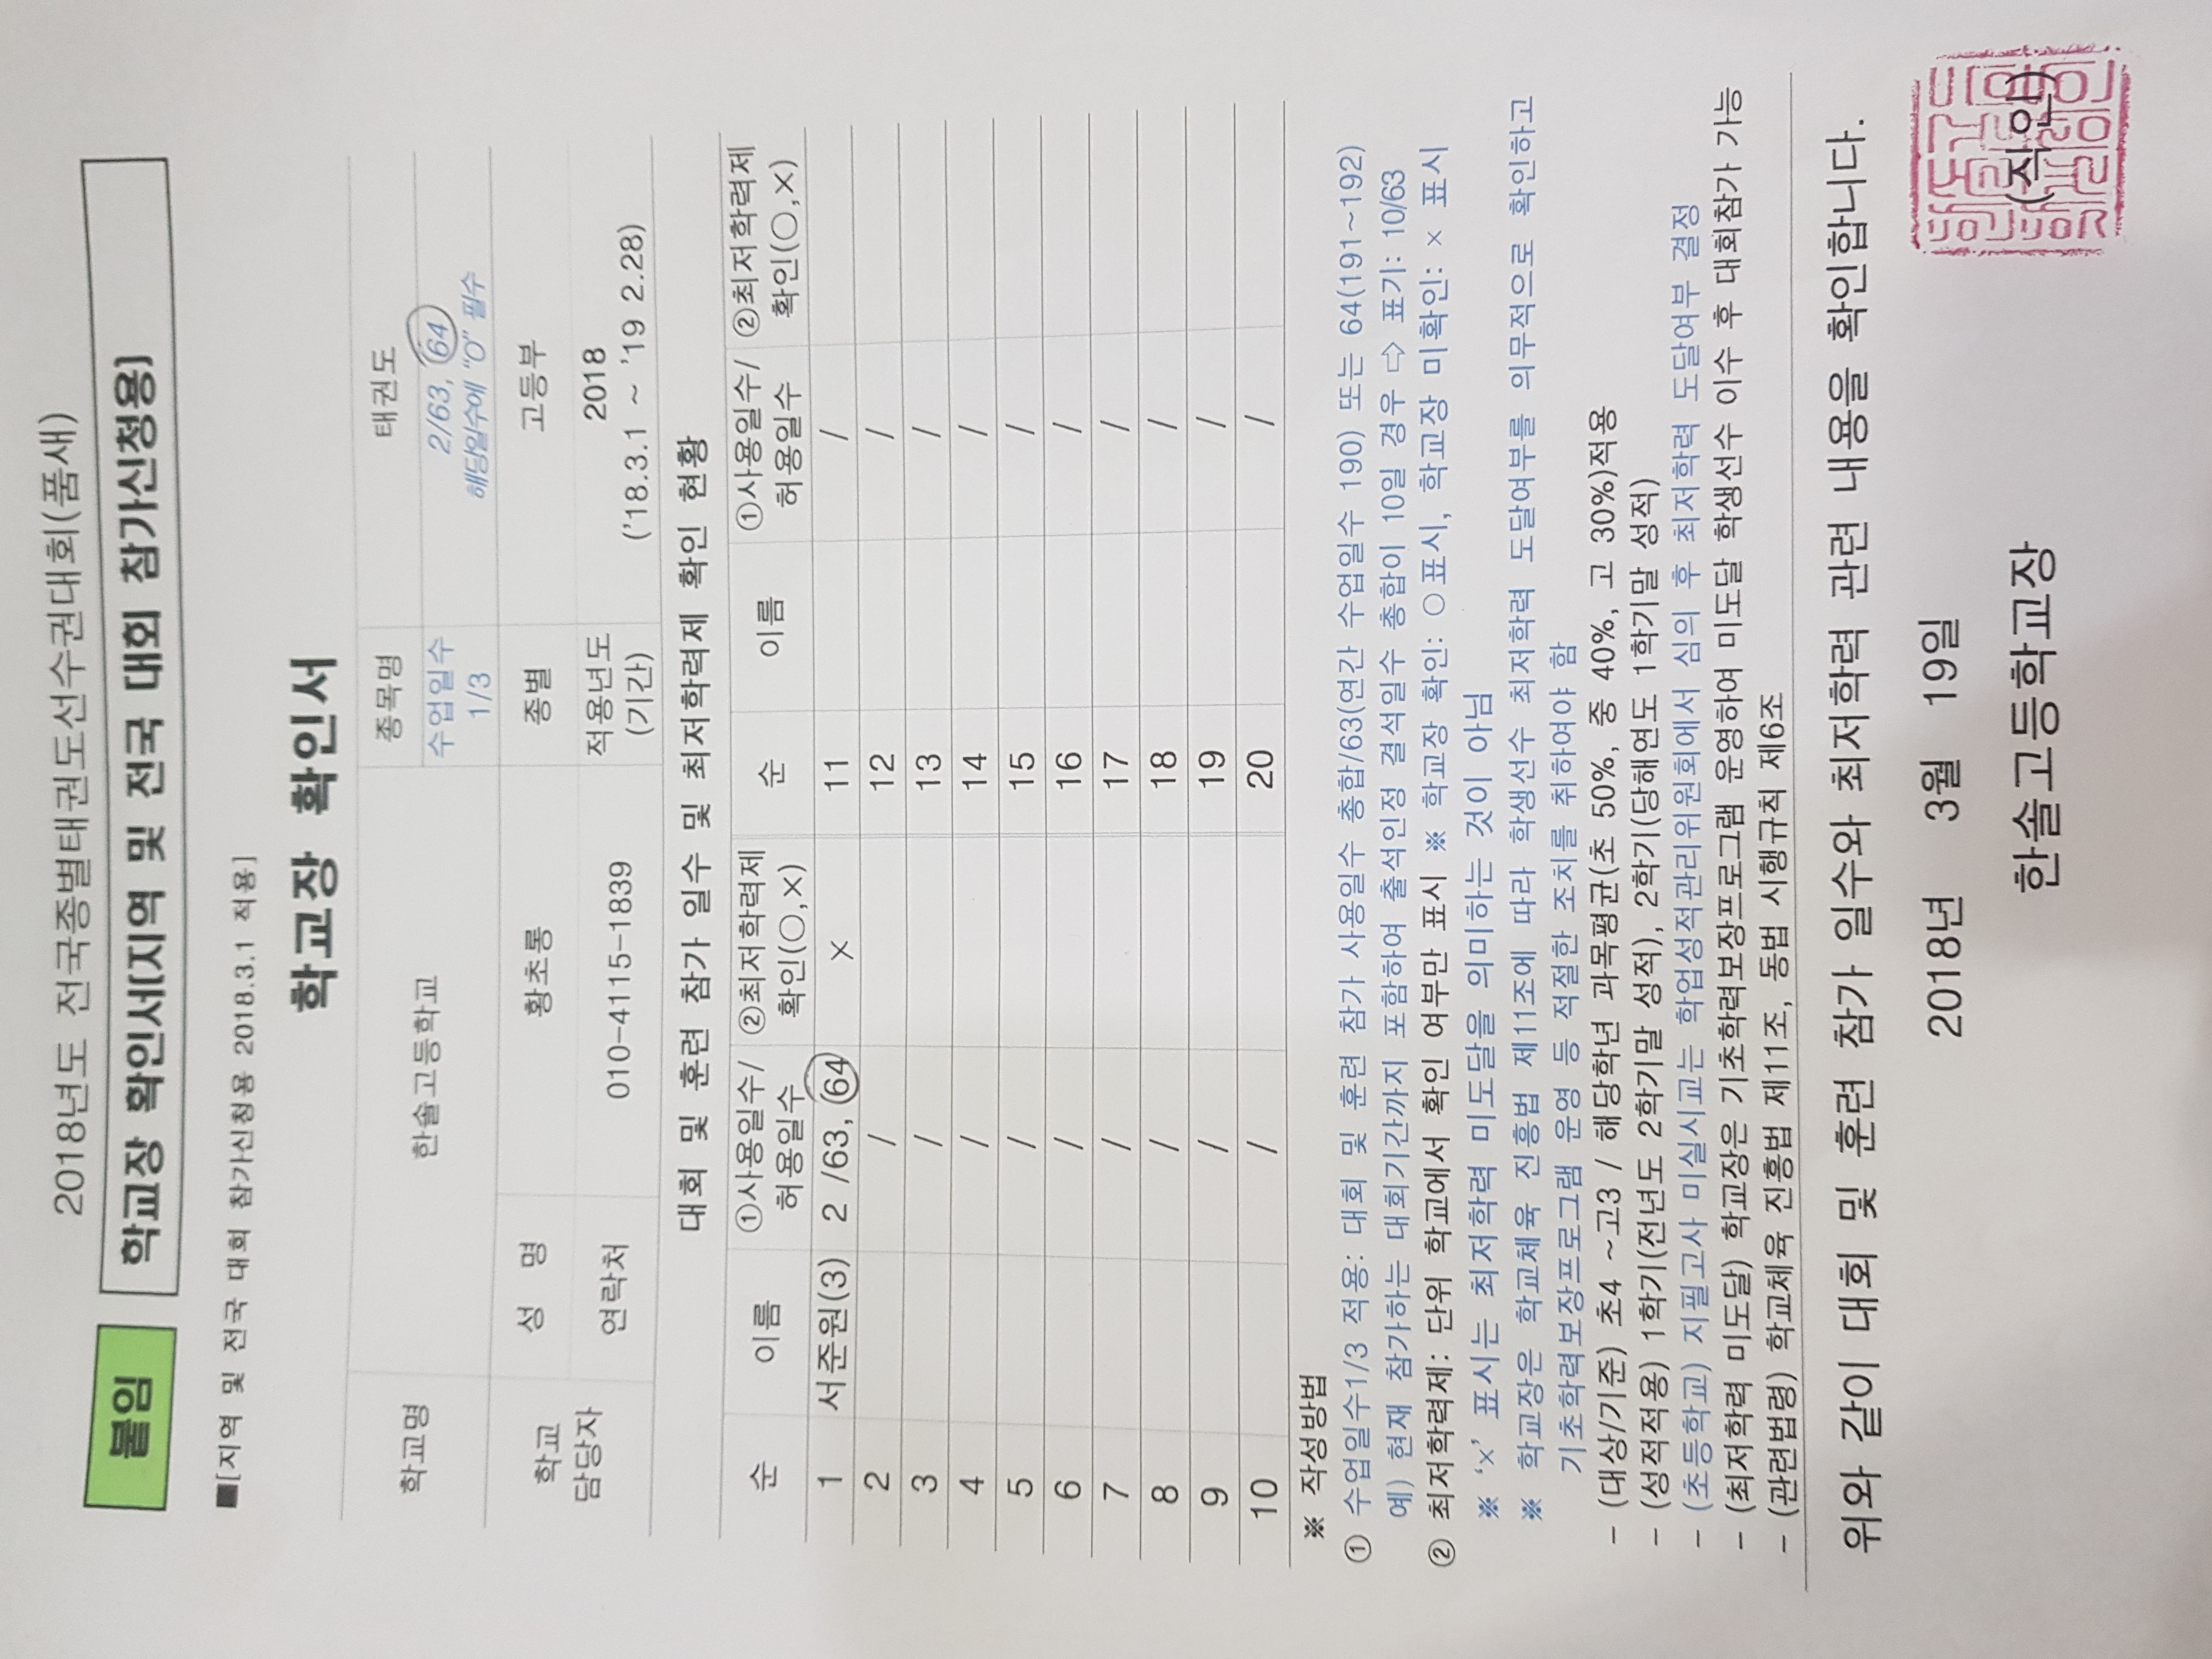 2018년도 전국종별태권도선수권대회(품새)
붙임 학교장 확인서(지역 및 전국 대회 참가신청용)
■[지역 및 전국 대회 참가신청용 2018.3.1 적용]
학교장 확인서
학교명 한솔고등학교 종목명 태권도
수업일수 1/3 2/63, 64
해당일수에 "O" 필수
학교 담당자 성 명 황초롱 종별 고등부
연락처 010-4115-1839 적용년도 (기간) 2018
('18.3.1 ~ '19 2.28)
대회 및 훈련 참가 일수 및 최저학력제 확인 현황
순 이름 ①사용일수/ 허용일수 ②최저학력제 확인(○,×) 순 이름 ①사용일수/ 허용일수 ②최저학력제 확인(○,×)
1 서준원(3) 2 /63, 64 × 11 /
2 / 12 /
3 / 13 /
4 / 14 /
5 / 15 /
6 / 16 /
7 / 17 /
8 / 18 /
9 / 19 /
10 / 20 /
※ 작성방법
① 수업일수1/3 적용: 대회 및 훈련 참가 사용일수 총합/63(연간 수업일수 190) 또는 64(191~192)
예) 현재 참가하는 대회기간까지 포함하여 출석인정 결석일수 총합이 10일 경우 ⇨ 표기: 10/63
② 최저학력제: 단위 학교에서 확인 여부만 표시 ※ 학교장 확인: ○표시, 학교장 미확인: × 표시
※ '×' 표시는 최저학력 미도달을 의미하는 것이 아님
※ 학교장은 학교체육 진흥법 제11조에 따라 학생선수 최저학력 도달여부를 의무적으로 확인하고
기초학력보장프로그램 운영 등 적절한 조치를 취하여야 함
- (대상/기준) 초4 ~고3 / 해당학년 과목평균(초 50%, 중 40%, 고 30%)적용
- (성적적용) 1학기(전년도 2학기말 성적), 2학기(당해연도 1학기말 성적)
- (초등학교) 지필고사 미실시교는 학업성적관리위원회에서 심의 후 최저학력 도달여부 결정
- (최저학력 미도달) 학교장은 기초학력보장프로그램 운영하여 미도달 학생선수 이수 후 대회참가 가능
- (관련법령) 학교체육 진흥법 제11조, 동법 시행규칙 제6조
위와 같이 대회 및 훈련 참가 일수와 최저학력 관련 내용을 확인합니다.
2018년 3월 19일
한솔고등학교장 (직인)